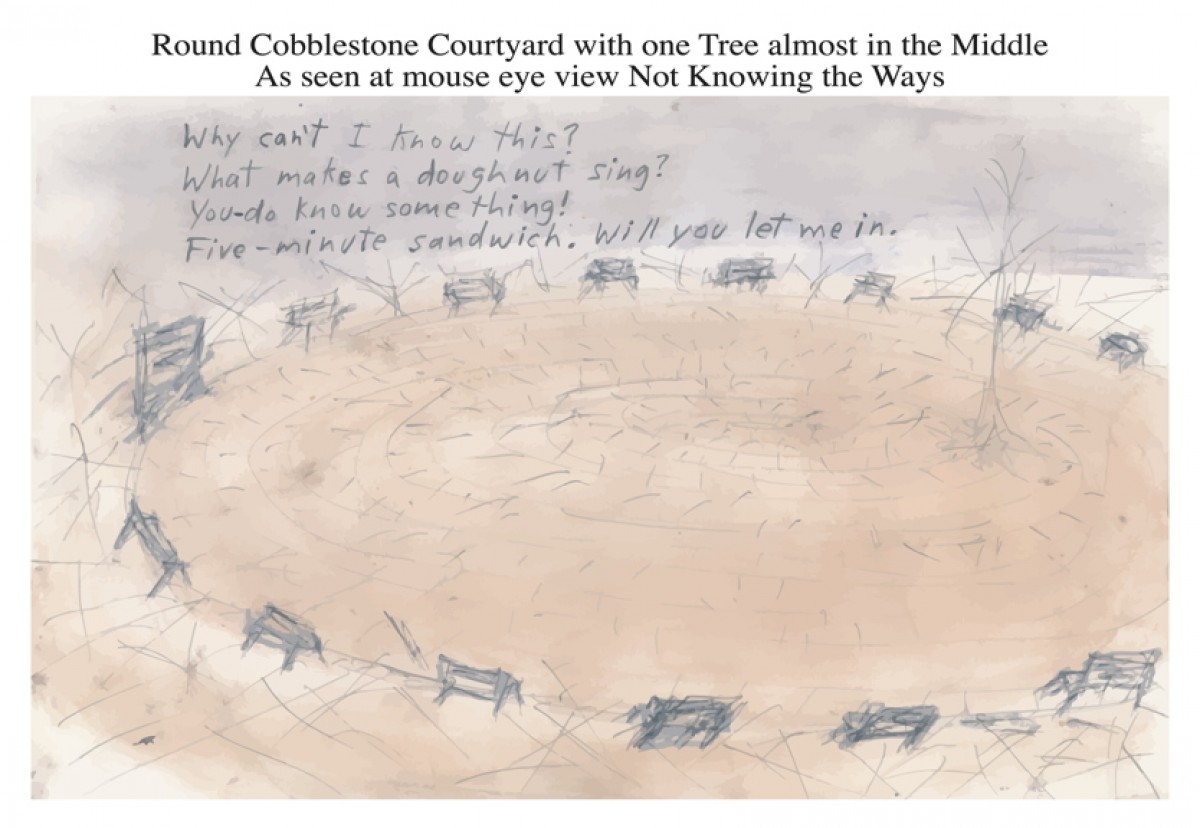 Round Cobblestone Courtyard with one Tree almost in the Middle
As seen at mouse eye view Not Knowing the Ways
Why can't I know this?
What makes a doughnut sing?
You-do know something!
Five-minute sandwich. Will you let me in.